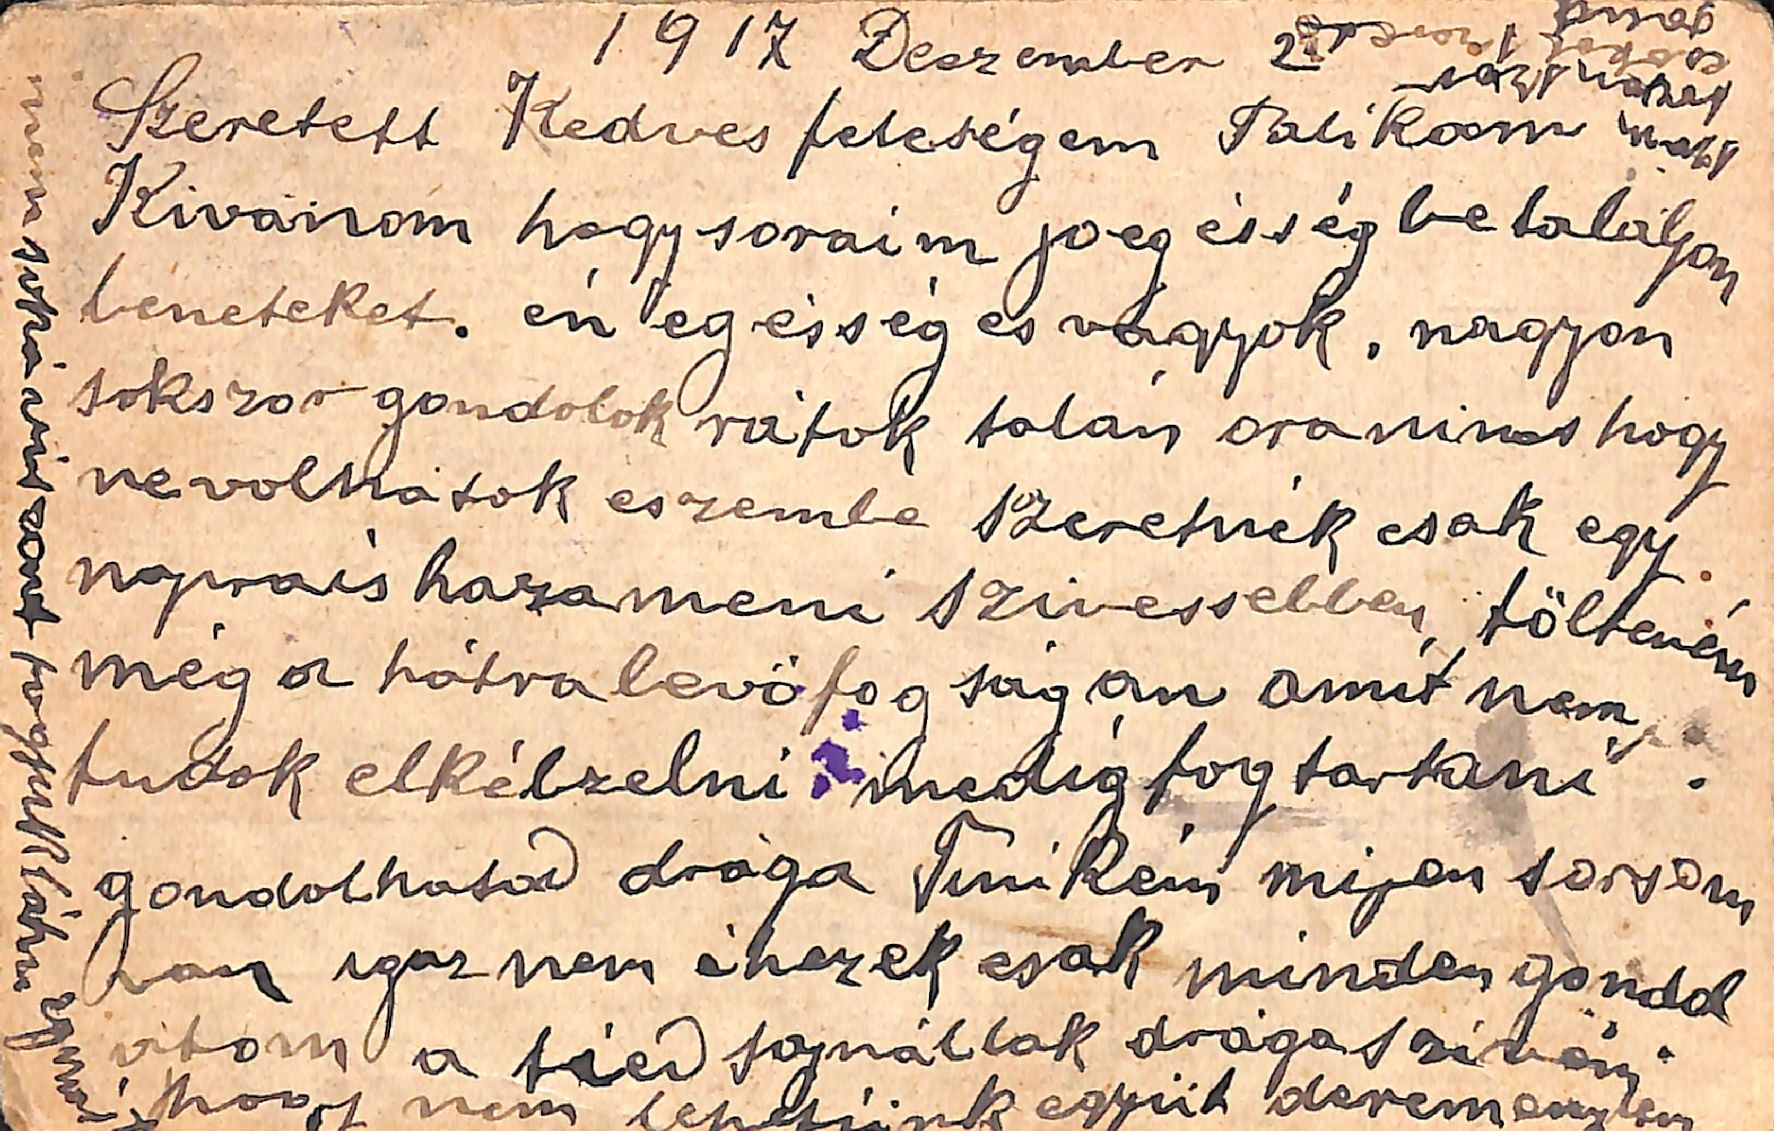 1917 Deszember 21
Szeretett Kedves feleségem Tatikaam
Kivánom hogy soraim jo egésségbe talaljon
beneteket. én egésséges vagyok, nagyon
sokszor gondolok rátok talán ora nincs hogy
ne volnátok eszembe szeretnék csak egy
napra is haza meni szivessebben tölteném
még a hátra levö fogságan amit nem
tudok elkébzelni medig fog tartani.
gondolhatod drága Tinikém mijen sorsom
van igaz nem éhezek csak minden gondol
atom a tiéd sajnállak drága szivem
hogy nem lehetünk együt deremenylem
nem soká viszont fogjuk látni egymást